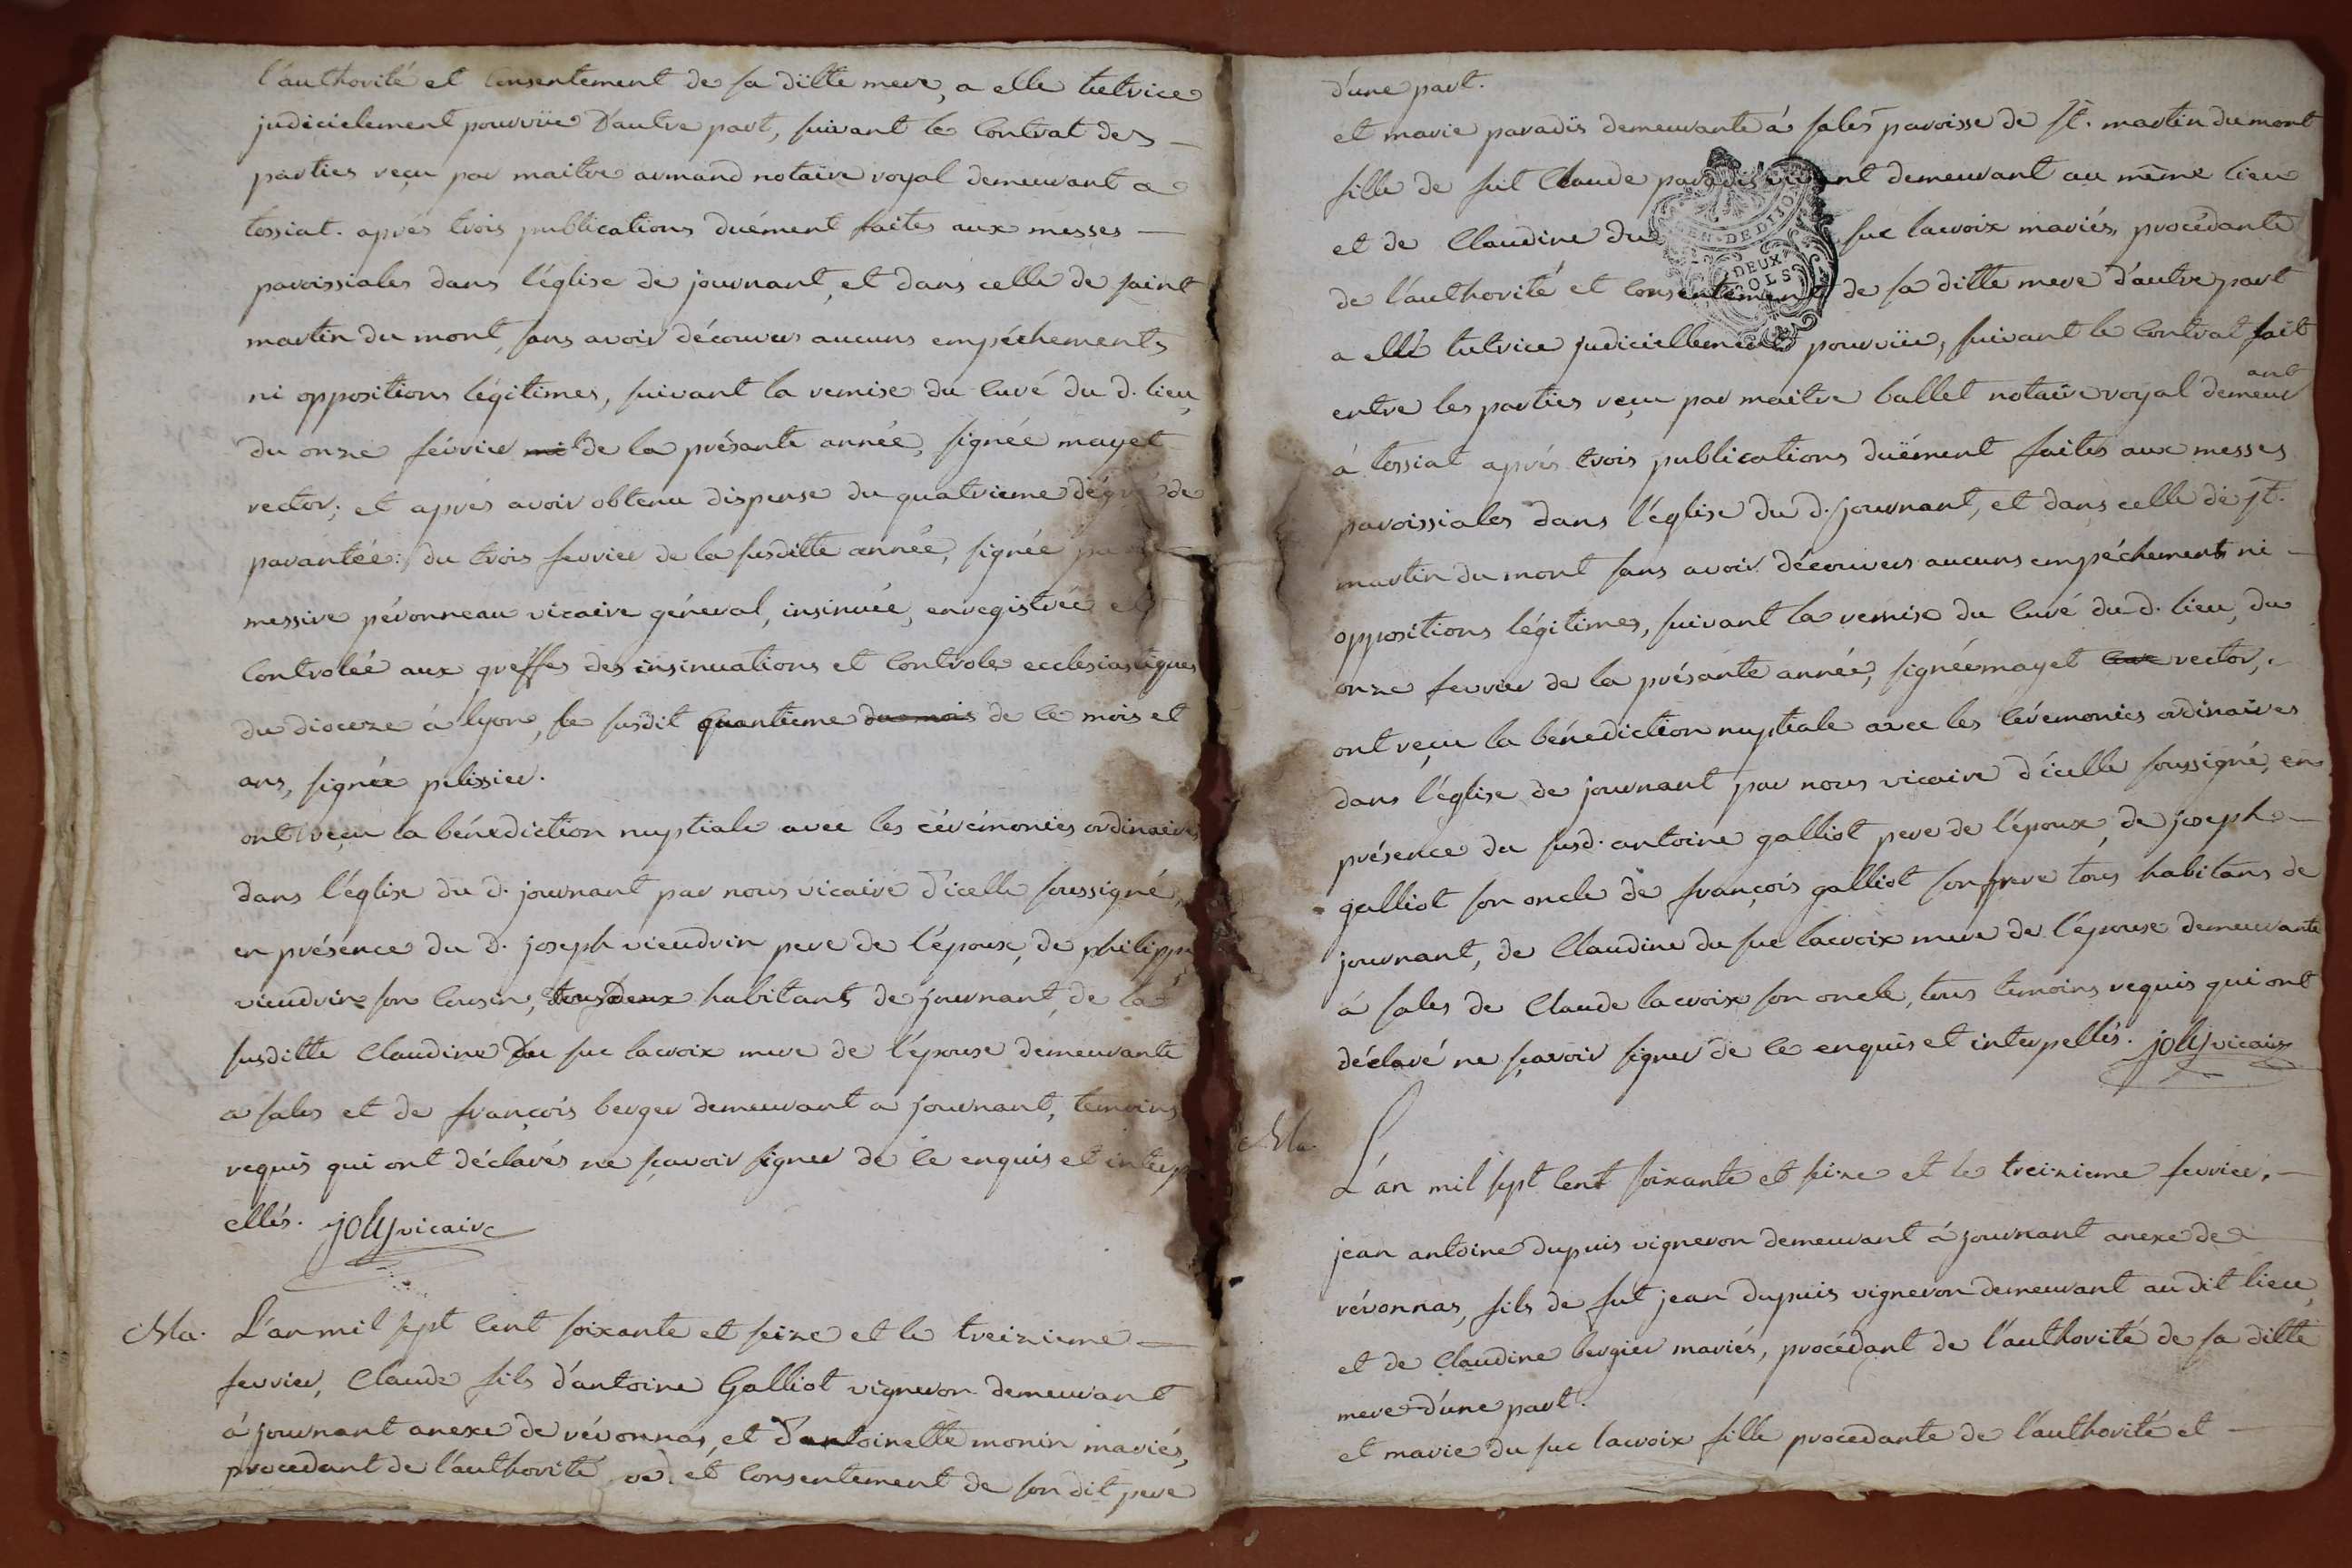 l'authorité et consentement de sa dïtte mere, a elle tutrice
judicielement pourvüe d'autre part, suivant le contrat des
parties reçu par maitre armand notaire royal demeurant a
tossiat. aprés trois publications duëment faites aux messes
paroissiales dans l'églisе de journant, et dans celle de saint
martin du mont, sans avoir découvers aucuns empéchements
ni oppositions légitimes, suivant la remise du curé du d. lieu,
du onze février de la présante année, signée mayet
rector; et aprés avoir obtenu dispense du quatrieme dégré de
parantée: du trois fevrier de la susditte année, signée
messire péronneau vicaire géneral, insinuée, enregistrée et
controlée aux greffes des insinuations et controles ecclesiastiques
du dioceze à lyon, le susdit quantieme du mois de ce mois et
ans, signée pelissier.
ont reçu la bénediction nuptiale avec les cérémonies ordinaires
dans l'église du d. journant par nous vicaire d'icelle soussigné,
en présence du d. joseph vieudrin pere de l'époux, de philippe
vieudrin son cousin, tous deux habitants de journant, de la
susditte Claudine du suc lacroix mere de l'épouse demeurante
a sales et de françois berger demeurant a journant, temoins
requis qui ont déclarés ne sçavoir signer de ce enquis et interp
ellés. joly vicaire
Ma. L'an mil sept cent soixante et seize et le treizieme
fevrier, Claude fils d'antoine Galliot vigneron demeurant
à journant anexe de révonnas, et d'antoinette monin mariés,
procedant de l'authorité et consentement de son dit pere
d'une part.
et marie paradis demeurante à sales paroisse de st. martin du mont
fille de fut Claude paradis vivant demeurant au même lieu
et de Claudine du suc lacroix mariés, procédante
GEN. DE DIJON
DEUX
SOLS
de l'authorité et consentement de sa ditte mere d'autre part
a elle tutrice judiciellement pourvüe, suivant le contrat fait
entre les parties reçu par maitre ballet notaire royal demeurant
à tossiat aprés trois publications duëment faites aux messes
paroissiales dans l'église du d. journant, et dans celle de st.
martin du mont sans avoir découvers aucuns empéchements ni
oppositions légitimes, suivant la remise du curé du d. lieu, du
onze fevrier de la présante année, signée mayet rector,
ont reçu la bénediction nuptiale avec les cérémonies ordinaires
dans l'église de journant par nous vicaire d'icelle soussigné, en
présence du susd. antoine galliot pere de l'époux, de joseph
galliot son oncle de françois galliot son frere tous habitans de
journant, de Claudine du suc lacroix mere de l'épouse demeurante
à sales de Claude lacroix son oncle, tous temoins requis qui ont
déclaré ne sçavoir signer de ce enquis et interpellés. joly vicaire
Ma.
L'an mil sept cent soixante et seize et le treizieme fevrier.
jean antoine dupuis vigneron demeurant à journant anexe de
révonnas, fils de fut jean dupuis vigneron demeurant audit lieu,
et de Claudine bergier mariés, procédant de l'authorité de sa ditte
mere d'une part.
et marie du suc lacroix fille procedante de l'authorité et